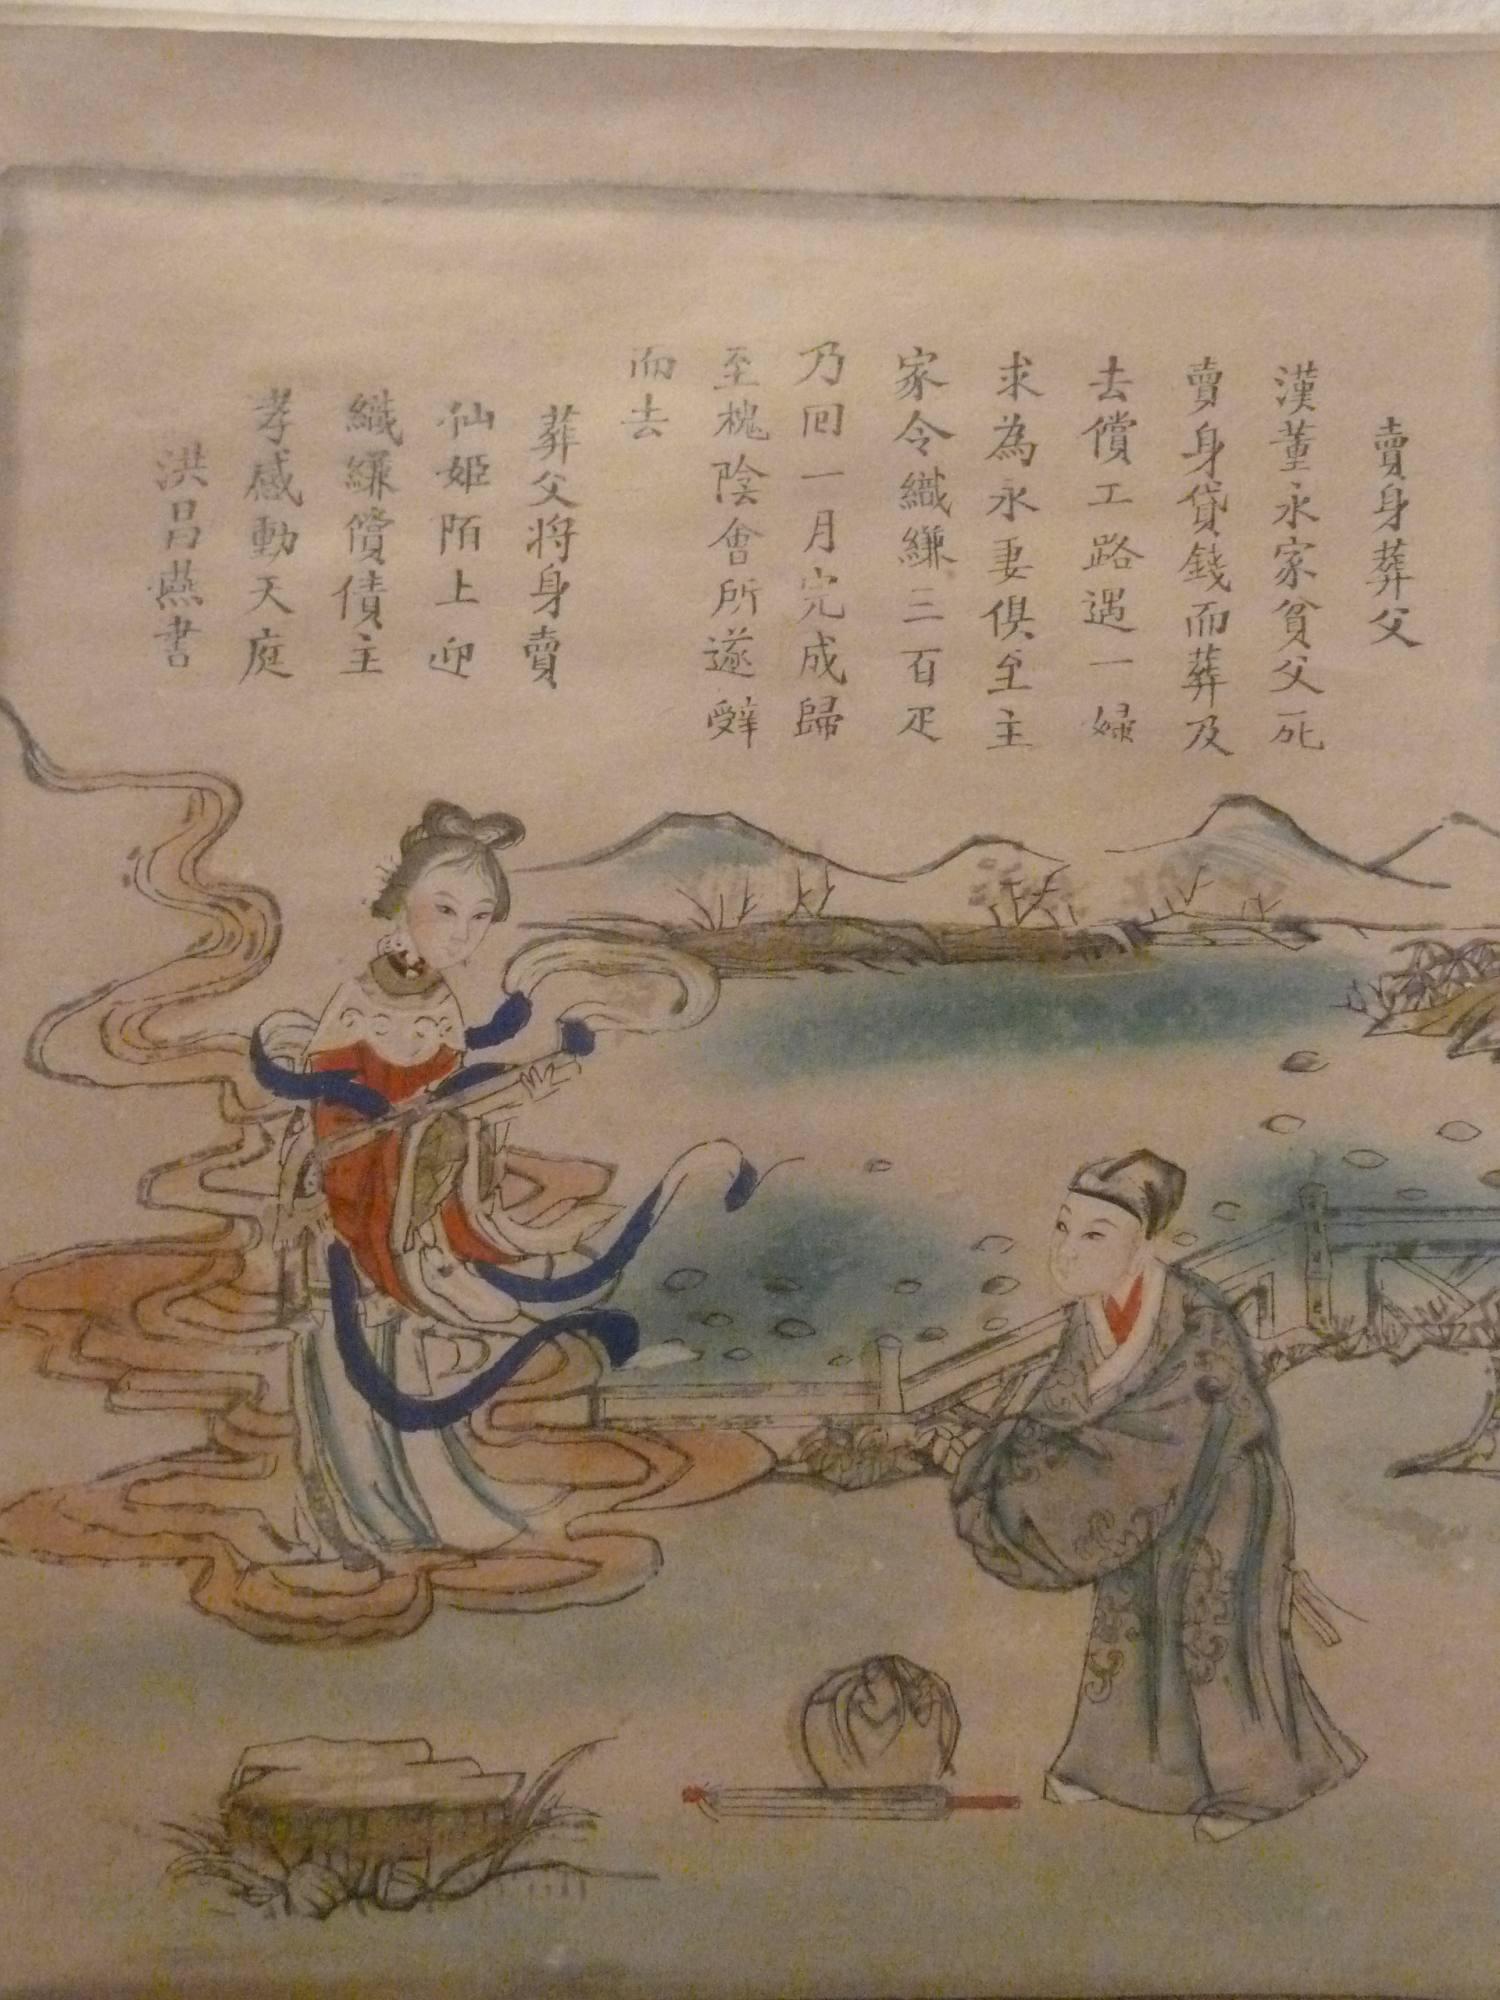 賣身葬父
漢董永家貧父死
賣身貸錢而葬及
去償工路遇一婦
求為永妻俱至主
家令織縑三百疋
乃回一月完成歸
至槐陰會所遂辤
而去
葬父将身賣
仙姬陌上迎
織縑償債主
孝感動天庭
洪昌燕書